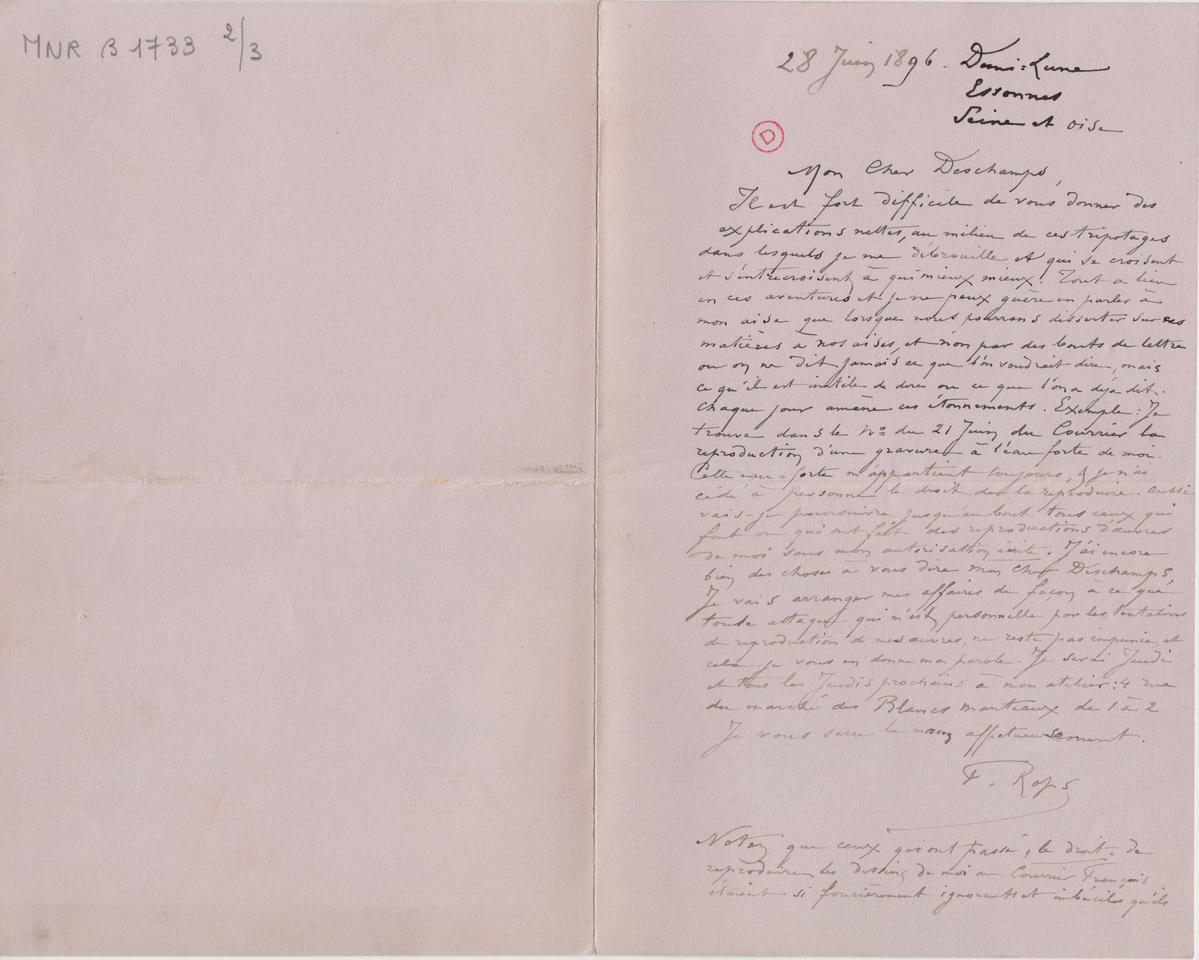 MNR B 1733 2/3
28 Juin 1896. Demi=Lune
Essonnes
Seine et Oise
D
Mon Cher Deschamps,
Il est fort difficile de vous donner des
explications nettes, au milieu de ces tripotages
dans lesquels je me débrouille et qui se croisent
et s'entrecroisent à qui mieux mieux! Tout a lieu
en ces aventures et je ne peux guère en parler à
mon aise que lorsque nous pourrons disserter sur ces
matières à nos aises, et non par des bouts de lettre
où on ne dit jamais ce que l'on voudrait dire, mais
ce qu'il est inutile de dire ou ce que l'on a déjà dit.
Chaque jour amène ces étonnements. Exemple: Je
trouve dans le No du 21 Juin du Courrier la
reproduction d'une gravure à l'eau forte de moi.
Cette eau-forte m'appartient toujours, & je n'ai
cédé à personne le droit de la reproduire. Aussi
vais-je poursuivre jusqu'au bout tous ceux qui
font ou qui ont fait des reproductions d'œuvres
de moi sans mon autorisation écrite. J'ai encore
bien des choses à vous dire mon cher Deschamps,
Je vais arranger mes affaires de façon à ce que
toute attaque qui m'est personnelle par les tentatives
de reproduction de mes œuvres, ne reste pas impunie, et
cela je vous en donne ma parole. Je serai Jeudi
et tous les Jeudis prochains à mon atelier: 4 rue
du marché des Blancs manteaux de 1 à 2
Je vous serre la main affectueusement.
F. Rops
Notez que ceux qui ont passé, le droit, de
reproduire les dessins de moi au Courrier Français
étaient si foncièrement ignorants et imbéciles qu'ils